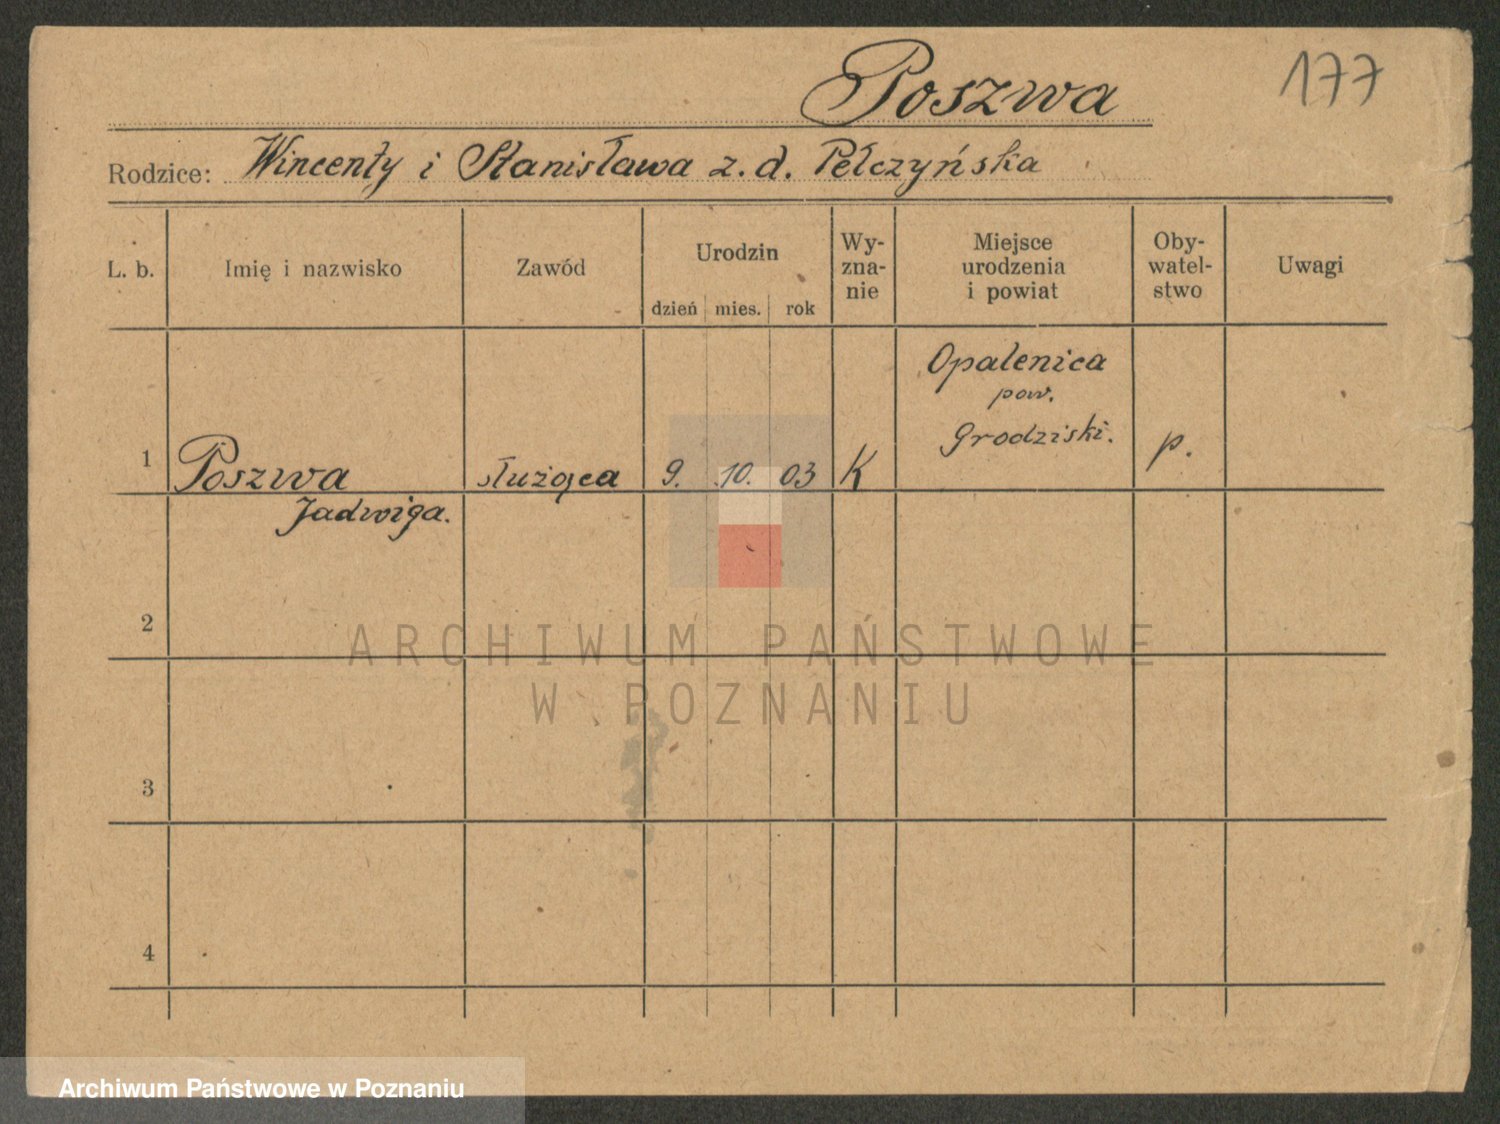 Poszwa
177
Rodzice: Wincenty i Stanisława z. d. Pełczyńska
L. b.
Imię i nazwisko
Zawód
Urodzin
dzień mies. rok
Wy-
zna-
nie
Miejsce
urodzenia
i powiat
Oby-
watel-
stwo
Uwagi
1
Poszwa
Jadwiga.
służąca
9. 10. 03
K
Opalenica
pow.
Grodziski.
p.
2
3
4
ARCHIWUM PAŃSTWOWE
W POZNANIU
Archiwum Państwowe w Poznaniu